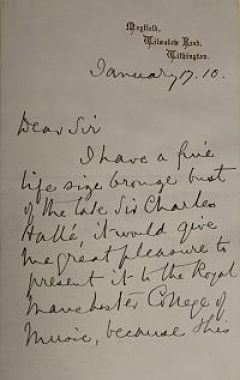 Mayfield,
Wilmslow Road,
Withington.
January 17. 10.
Dear Sir
I have a fine
life size bronze bust
of the late Sir Charles
Hallé, it would give
me great pleasure to
present it to the Royal
Manchester College of
Music, because this